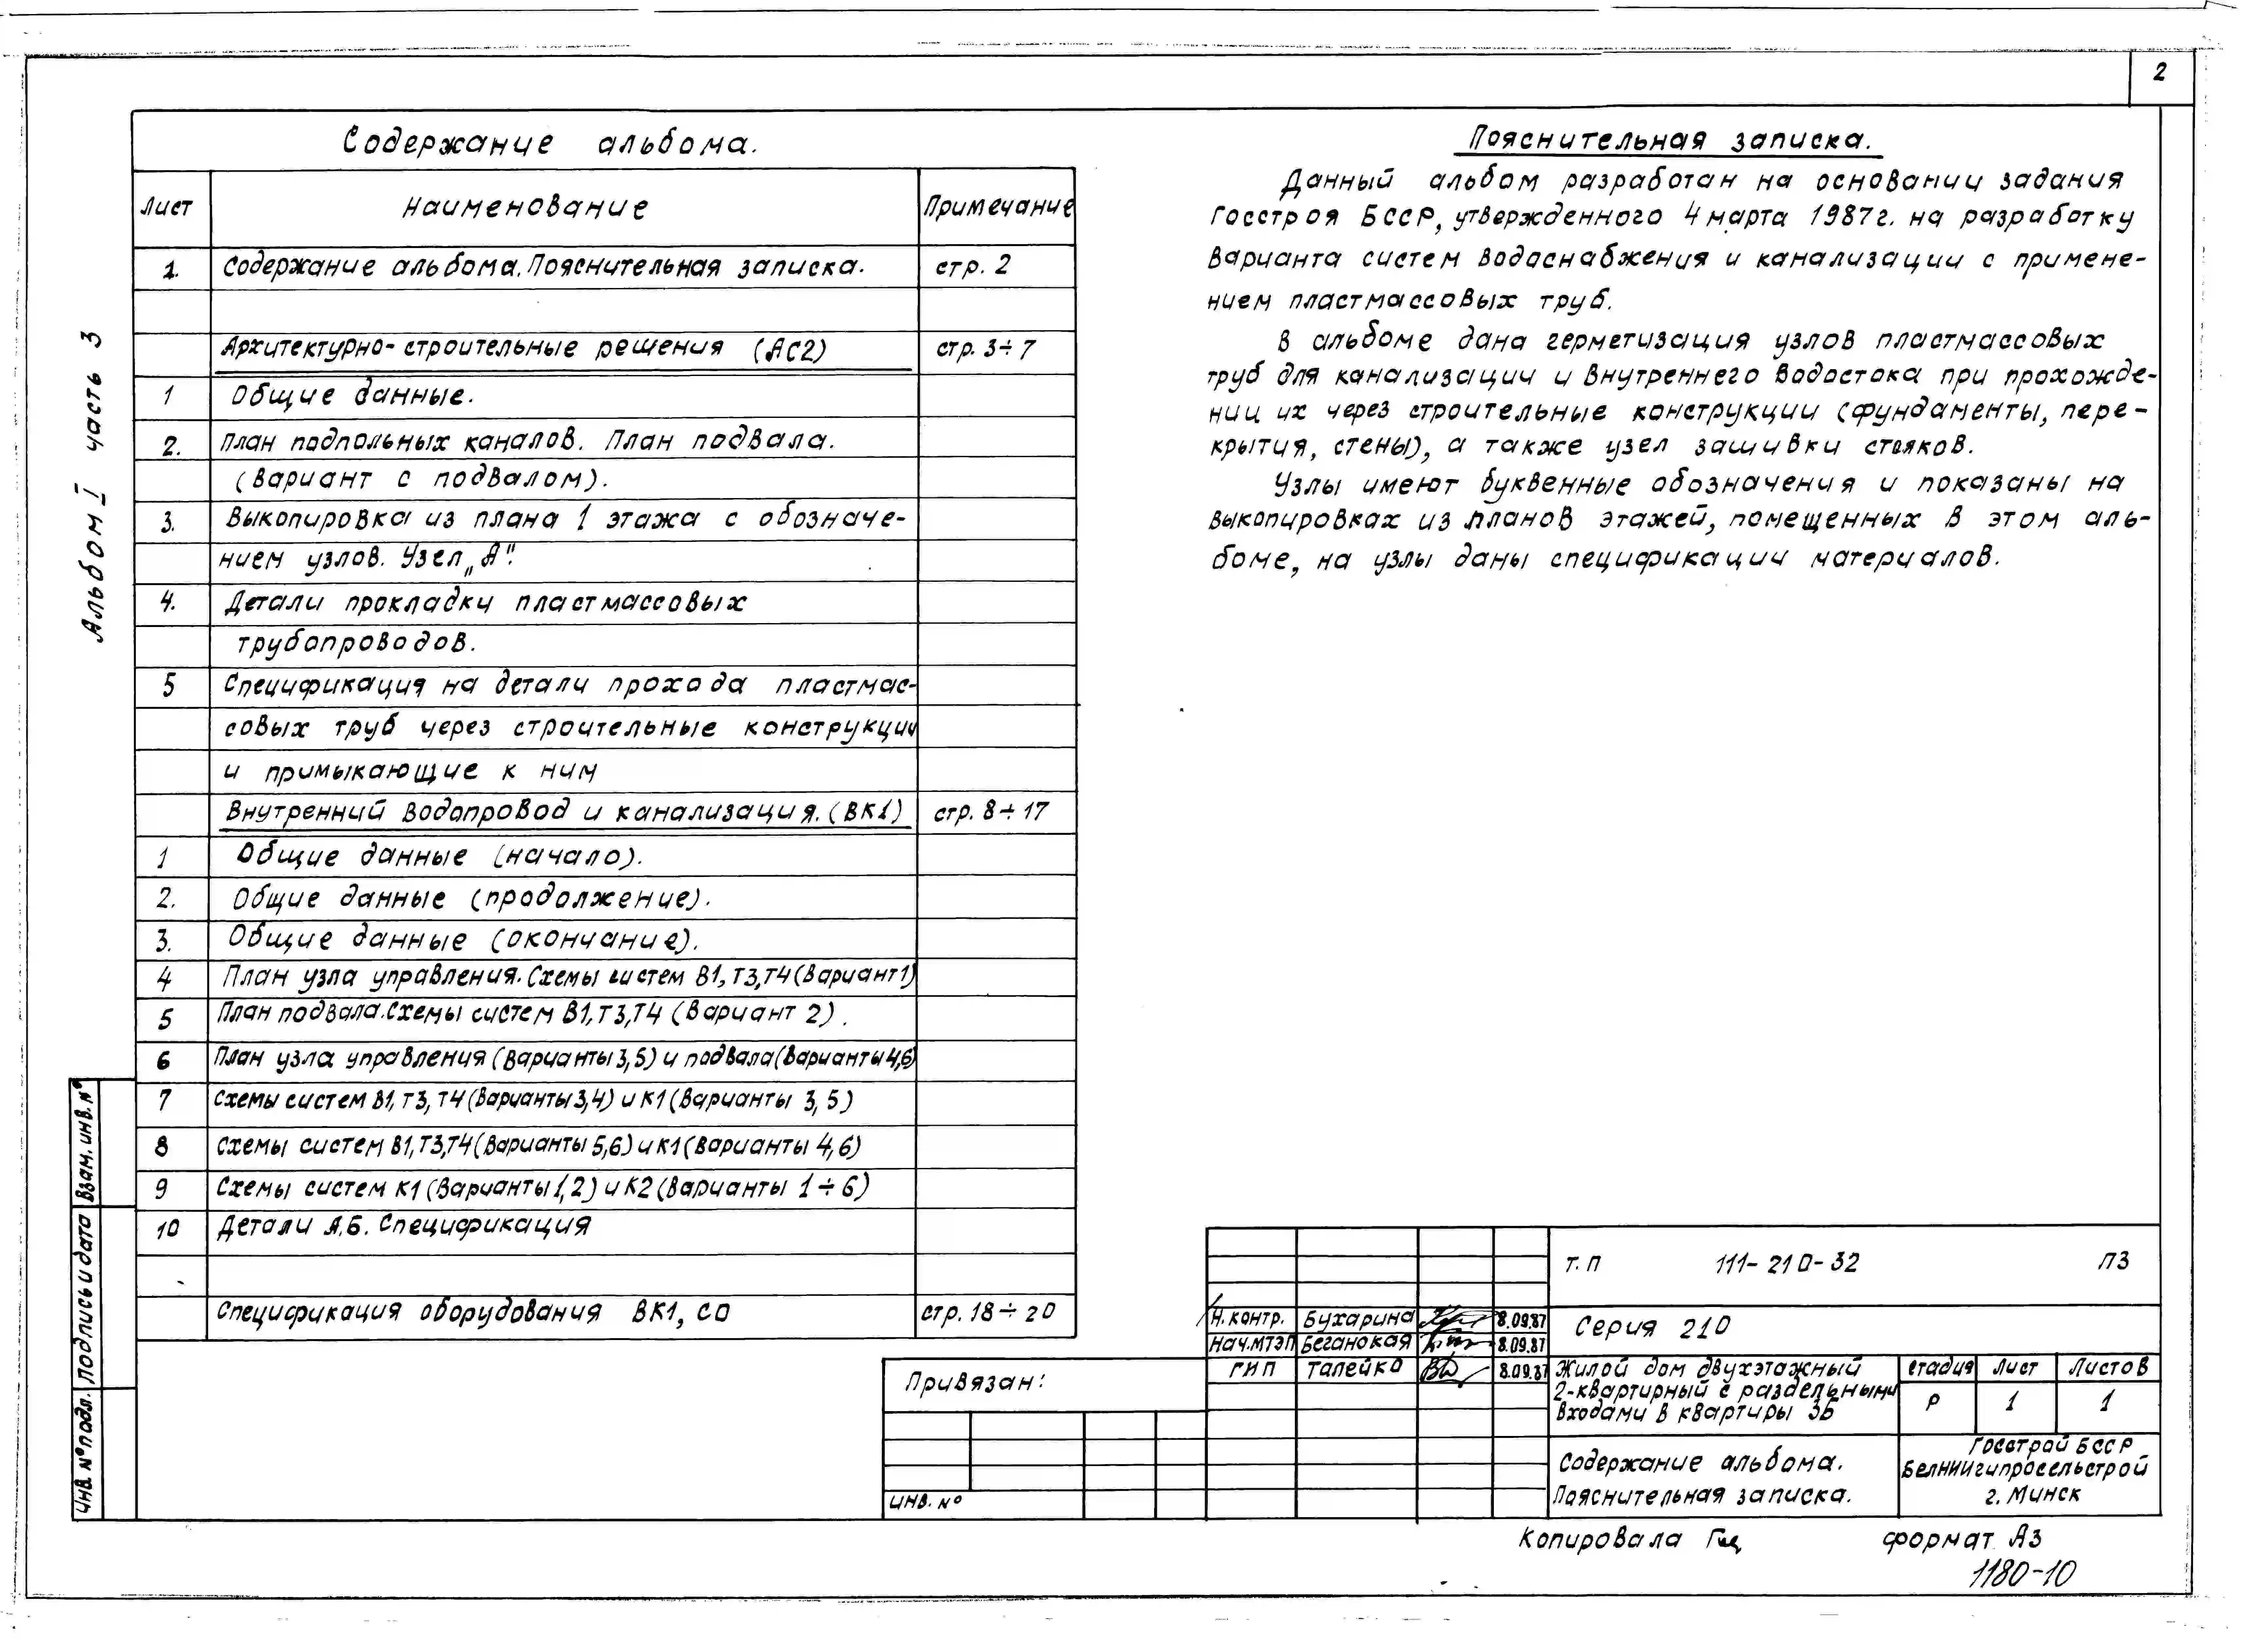 2
Альбом I часть 3
Содержание альбома.
Лист Наименование Примечание
1. Содержание альбома. Пояснительная записка. стр. 2
Архитектурно-строительные решения (АС2) стр. 3÷7
1 Общие данные.
2. План подпольных каналов. План подвала.
(Вариант с подвалом).
3. Выкопировка из плана 1 этажа с обозначе-
нием узлов. Узел „А".
4. Детали прокладки пластмассовых
трубопроводов.
5 Спецификация на детали прохода пластмас-
совых труб через строительные конструкции
и примыкающие к ним
Внутренний водопровод и канализация. (ВК1) стр. 8÷17
1 Общие данные (начало).
2. Общие данные (продолжение).
3. Общие данные (окончание).
4 План узла управления. Схемы систем В1, Т3, Т4 (Вариант 1)
5 План подвала. Схемы систем В1, Т3, Т4 (Вариант 2).
6 План узла управления (Варианты 3, 5) и подвала (Варианты 4,6)
7 Схемы систем В1, Т3, Т4 (Варианты 3,4) и К1 (Варианты 3, 5)
8 Схемы систем В1, Т3, Т4 (Варианты 5,6) и К1 (Варианты 4,6)
9 Схемы систем К1 (Варианты 1, 2) и К2 (Варианты 1÷6)
10 Детали А, Б. Спецификация
Спецификация оборудования ВК1, СО стр. 18÷20
Пояснительная записка.
Данный альбом разработан на основании задания
Госстроя БССР, утвержденного 4 марта 1987г. на разработку
варианта систем водоснабжения и канализации с примене-
нием пластмассовых труб.
В альбоме дана герметизация узлов пластмассовых
труб для канализации и внутреннего водостока при прохожде-
нии их через строительные конструкции (фундаменты, пере-
крытия, стены), а также узел зашивки стояков.
Узлы имеют буквенные обозначения и показаны на
выкопировках из планов этажей, помещенных в этом аль-
боме, на узлы даны спецификации материалов.
Взам. инв. №
Подпись и дата
Инв. № подл.
Привязан:
Инв. №
Т. П 111-210-32 ПЗ
Н. контр. Бухарина 8.09.87
Нач. МТЭП Беганская 8.09.87
ГИП Талейко 8.09.87
Серия 210
Жилой дом двухэтажный
2-квартирный с раздельными
входами в квартиры 3Б
Стадия Лист Листов
Р 1 1
Содержание альбома.
Пояснительная записка.
Госстрой БССР
БелНИИгипросельстрой
г. Минск
Копировала формат А3
1180-10